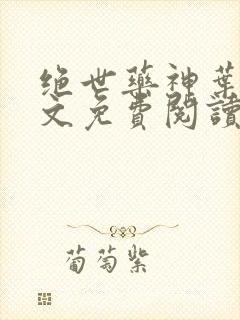 绝世药神葉
文免費閱讀
葡萄紫